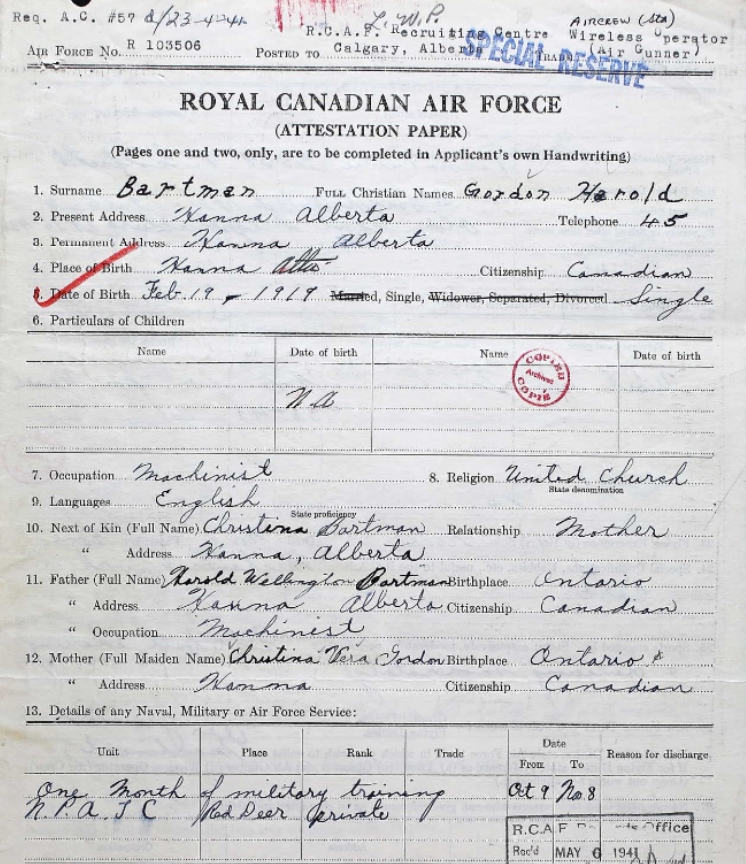 Req. A.C. #57 d/23-4-41
L.W.P.
AIRCREW (Std)
R.C.A.F. Recruiting Centre Wireless Operator
AIR FORCE NO. R 103506 POSTED TO Calgary, Alberta TRADE (Air Gunner)
SPECIAL RESERVE
ROYAL CANADIAN AIR FORCE
(ATTESTATION PAPER)
(Pages one and two, only, are to be completed in Applicant's own Handwriting)
1. Surname Bartman FULL Christian Names Gordon Harold
2. Present Address Hanna Alberta Telephone 45
3. Permanent Address Hanna, Alberta
4. Place of Birth Hanna Alta Citizenship Canadian
5. Date of Birth Feb. 19, 1919 Married, Single, Widower, Separated, Divorced Single
6. Particulars of Children
Name Date of birth Name Date of birth
COPIED
Archives
COPIE
N.A
7. Occupation Machinist 8. Religion United Church
State denomination
9. Languages English
State proficiency
10. Next of Kin (Full Name) Christina Bartman Relationship Mother
" Address Hanna, Alberta
11. Father (Full Name) Harold Wellington Bartman Birthplace Ontario
" Address Hanna Alberta Citizenship Canadian
" Occupation Machinist
12. Mother (Full Maiden Name) Christina Vera Gordon Birthplace Ontario
" Address Hanna Citizenship Canadian
13. Details of any Naval, Military or Air Force Service:
Unit Place Rank Trade Date Reason for discharge
From To
One Month of military training Oct 9 No. 8
N.P.A.T C Red Deer private
R.C.A.F Office
Rec'd MAY 6 1941